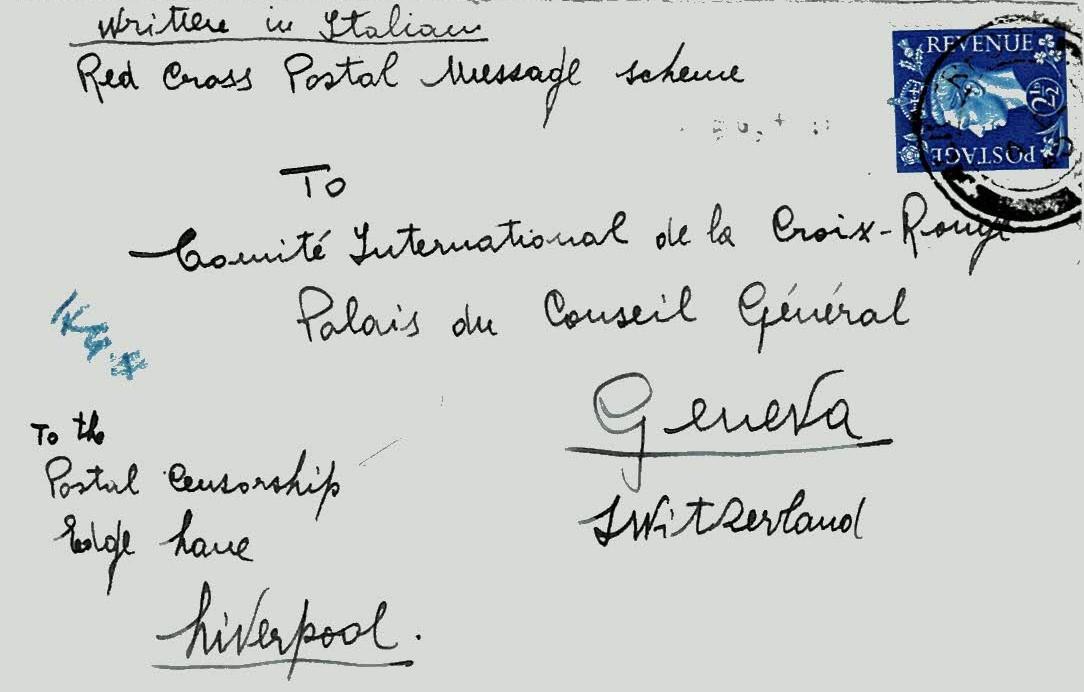 Written in Italian
Red Cross Postal Message scheme
REVENUE
2½
POSTAGE
To
Comité International de la Croix-Rouge
Palais du Conseil Général
Geneva
Switzerland
To the
Postal Censorship
Edge Lane
Liverpool.